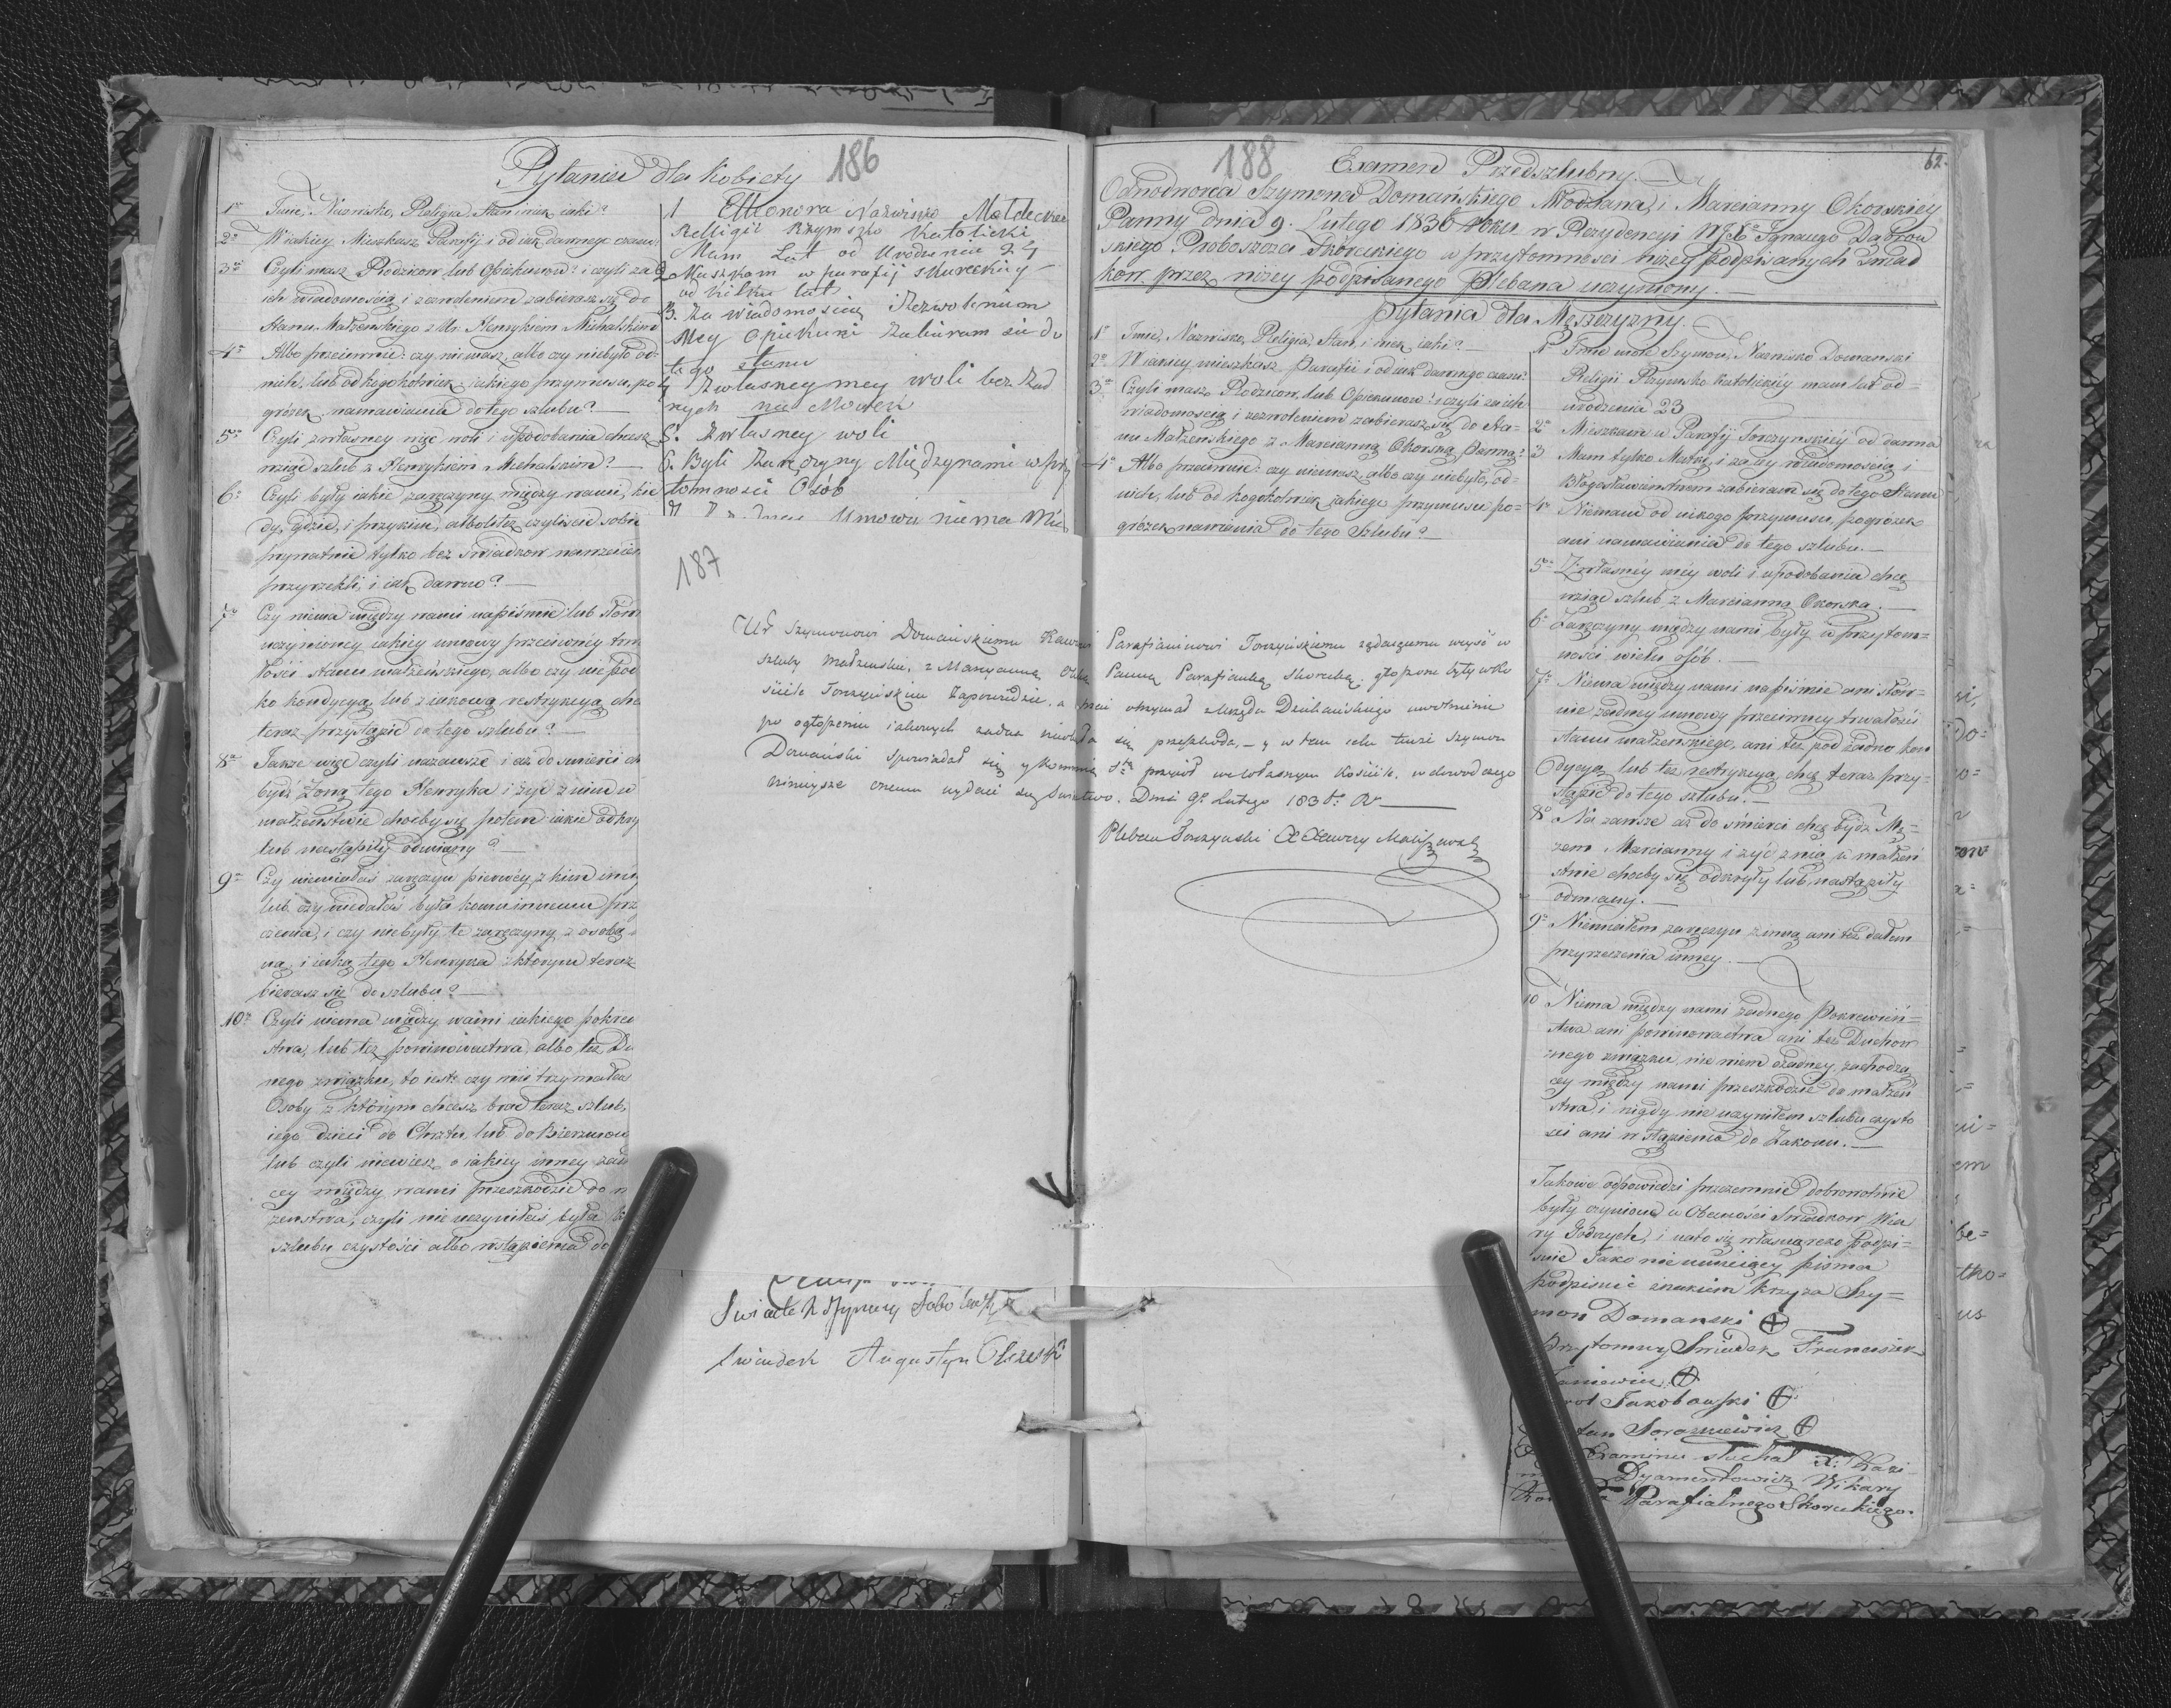 186
Pytania dla Kobiety
1o Imie, Nazwisko, Religia, Stan i wiek iaki?
2o W iakiey Mieszkasz Parafij i od iak dawnego czasu?
3o Czyli masz Rodzicow lub Opiekunow? i czyli za
ich wiadomością i zezwoleniem zabierasz się do
Stanu Małżenskiego z Ur. Henrykiem Michalskim
4o Albo przeciwnie: czy niemasz, albo czy niebyło od
nich, lub od kogokolwiek iakiego przymusu, po
gróżek namawiania do tego szlubu?
5o Czyli z własney więc woli i upodobania chcesz
wziąć szlub z Henrykiem Michalskim?
6o Czyli były iakie zaręczyny między wami, kie
dy, gdzie, i przy kim, albo też czyliście sobie
prywatnie tylko bez świadkow nawzaiem
przyrzekli, i iak dawno?
7o Czy niema między wami na piśmie lub słow
uczynioney iakiey umowy przeciwney trw
łości stanu małżeńskiego, albo czy nie pod
ko kondycyą lub z iakową restrykcyą chc
teraz przystąpić do tego szlubu?
8o Także więc czyli na zawsze i aż do śmierci ch
bydź Żoną tego Henryka i żyć z nim w
małżeństwie choćby się potem iakie odkry
lub nastąpiły odmiany?
9o Czy niemiałaś zaręczyn pierwey z kim inny
lub czy niedałaś była komu innemu prz
czenia, i czy niebyły te zaręczyny z osobą
ną i iaką tego Henryka z którym teraz
bierasz się do szlubu?
10o Czyli niema między wami iakiego pokrew
stwa, lub też powinowactwa, albo też Du
nego związku, to iest: czy nie trzymałaś
Osoby z którym chcesz brać teraz szlub,
iego dzieci do Chrztu, lub do Bierzmow
lub czyli niewiesz o iakiey inney zach
cey między wami przeszkodzie do m
żenstwa, czyli nie uczyniłaś była
szlubu czystości albo wstąpienia do
1 Elleonora Nazwisko Małdecka
Relligii Rzymsko Katolicki
Mam Lat od Urodzenia 24
2 Muszkam w parafij skureckiy
od kilku lat
3. Za wiadomoscią i Zezwolenium
Mey Opiekuni Zabieram sie do
tego stanu
4 Zwlasney mey woli bez Żad
nych na Mowen
5. Z wlasney woli
6. Byli Zaręczyny Między nami w przy
tomnosci Osób
Umowa niema Mie
Swiadek
Swiadek Augustyn
187
Ur Szymonowi Domańskiemu Parafianinowi Torczyńskiemu żądaiącemu wniyść w
szluby małżenskie, z Maryanną Panną Parafianką Skorecką, głoszone były w Ko
ściele Torczyńskim Zapowiedzie, a otrzymał z Urzędu Dziekańskiego uwolnienie
po ogłoszeniu iakowych żadna niewykła się przeszkoda, – y w tem celu tenże Szymon
Domański spowiadał się y kommunią S-tą przyiął we własnym Kościele, w dowod czego
niniejsze onemu wydaie się Swiadectwo. Dnia 9o Lutego 1836o R
Pleban Torczynski X Xawery
188
62.
Examen Przedszlubny.
Odnodworca Szymona Domańskiego Młodziana, i Marcianny Okorskiey
Panny dnia 9. Lutego 1836 Roku w Rezydencyi WJXo Ignacego Dąbrow
skiego Proboszcza Skóreckiego w przytomności niżey podpisanych Świad
kow przez niżey podpisanego Plebana uczyniony.
Pytania dla Męszczyzny.
1o Imie, Nazwisko, Religia, Stan, i wiek iaki?
2o W iakiey mieszkasz Parafii i od iak dawnego czasu?
3o Czyli masz Rodzicow, lub Opiekunow? i czyli za ich
wiadomością i zezwoleniem zabierasz się do Sta=
nu Małżenskiego z Marcianną Okorską Panną?
4o Albo przeciwnie: czy niemasz, albo czy niebyło, od=
nich, lub od kogokolwiek iakiego przymusu po=
gróżek namawiania do tego Szlubu?
1o Imie moie Szymon, Nazwisko Domanski
Religii Rzymsko Katolickiéy mam lat od=
urodzenia 23
2o Mieszkam w Parafij Torczynskiéy od dawna
3 Mam tylko Matkę i za iey wiadomością i
Błogosławieństwem zabieram się do tego Stanu
4o Niemam od nikogo przymusu, pogrózek
ani namawiania do tego szlubu.
5o Z własnéy méy woli i upodobania chcę
wziąć szlub z Marcianną Okorska.
6o Zaręczyny między nami były w przytom=
ności wielu osób.
7o Niema między nami na piśmie ani słow=
nie żadney umowy przeciwney trwałości
stanu małżenskiego, ani też pod żadną kon
dycyą lub też restrykcyą chcę teraz przy=
stąpić do tego szlubu.
8o Na zawsze aż do śmierci chcę bydź Mę=
żem Marcianny i żyć z nią w małżeń
stwie choćby się odkryły lub nastąpiły
odmiany.
9o Niemiałem zaręczyn z inną ani też dałem
przyrzeczenia inney.
10 Niema między nami żadnego Pokrewień=
stwa ani powinowactwa ani też Duchow
nego związku, nie wiem o żadney zachodzą
cey między nami przeszkodzie do małżeń
stwa i nigdy nie uczyniłem szlubu czysto
ści ani wstąpienia do Zakonu.
Takowe odpowiedzi przezemnie dobrowolnie
były czynione w Obecności Świadkow Wia
ry Godnych, i na to się własnoręcznie podpi=
suie Jako nie umieiący pisma
podpisuie znakiem krzyża Szy=
mon Domanski +
Przytomny Świadek Franciszek
+
Jakobowski +
+
Examinu słuchał X: Kazi
Dyamentowicz Wikary
Parafialnego Skoreckiego.